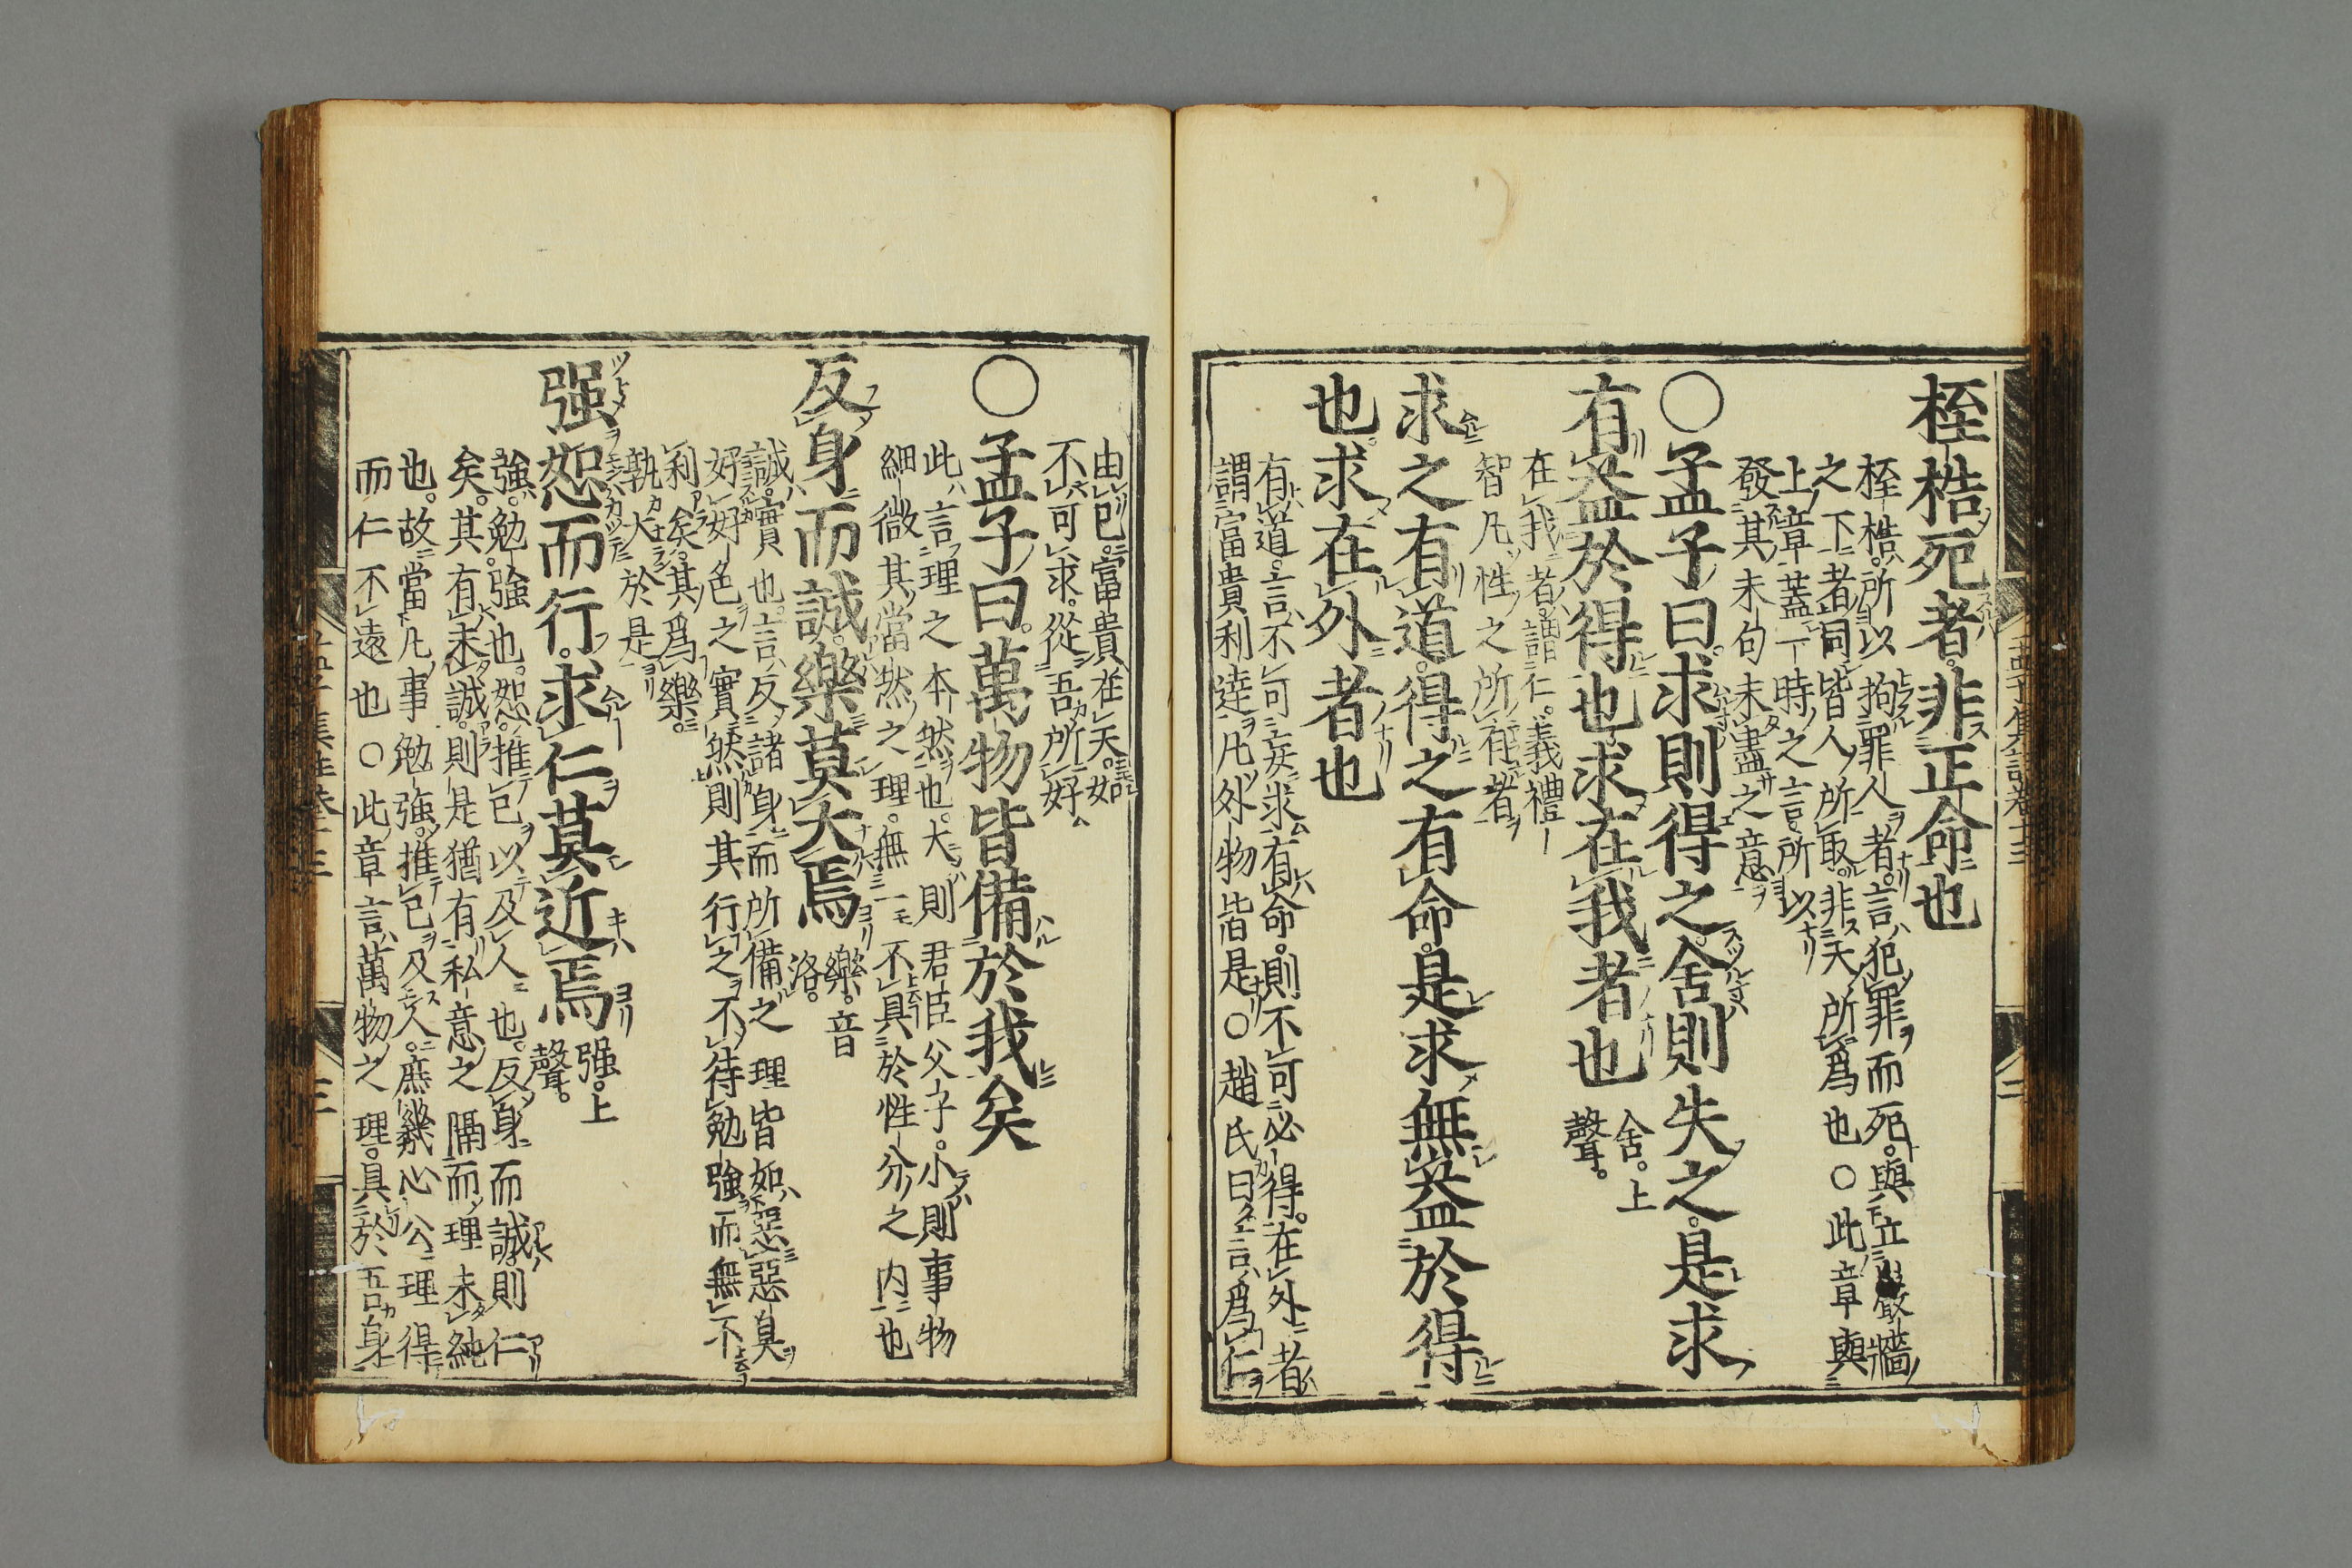 桎梏死者。非正命也
桎梏。所以拘罪人者。言犯罪而死。與立巖墻
之下者同。皆人所取。非天所爲也○此章與
上章蓋一時之言。所以
發其未句未盡之意。
○孟子曰。求則得之。舍則失之。是求
有益於得也。求在我者也 舍。上聲。
在我者。謂仁義禮
智凡性之所有者
求之有道。得之有命。是求無益於得
也。求在外者也
有道。言不可妄求。有命。則不可必得。在外者。
謂富貴利達。凡外物皆是。○趙氏曰。言爲仁
由已。富貴在天。如
不可求。從吾所好
○孟子曰。萬物皆備於我矣
此言理之本然也。大則君臣父子。小則事物
細微。其當然之理。無一不具於性分之内也
反身而誠。樂莫大焉 樂。音洛。
誠。實也。言反諸身。而所備之理。皆如惡惡臭
好好色之實然。則其行之。不待勉強。而無不
利矣。其爲樂。
孰大於是
强恕而行。求仁莫近焉 强。上聲。
強。勉強也。恕。推已以及人也。反身而誠。則仁
矣。其有未誠。則是猶有私意之隔。而理未純
也。故當凡事勉強。推已及人。庶幾心公理得
而仁不遠也○此章言萬物之理。具於吾身